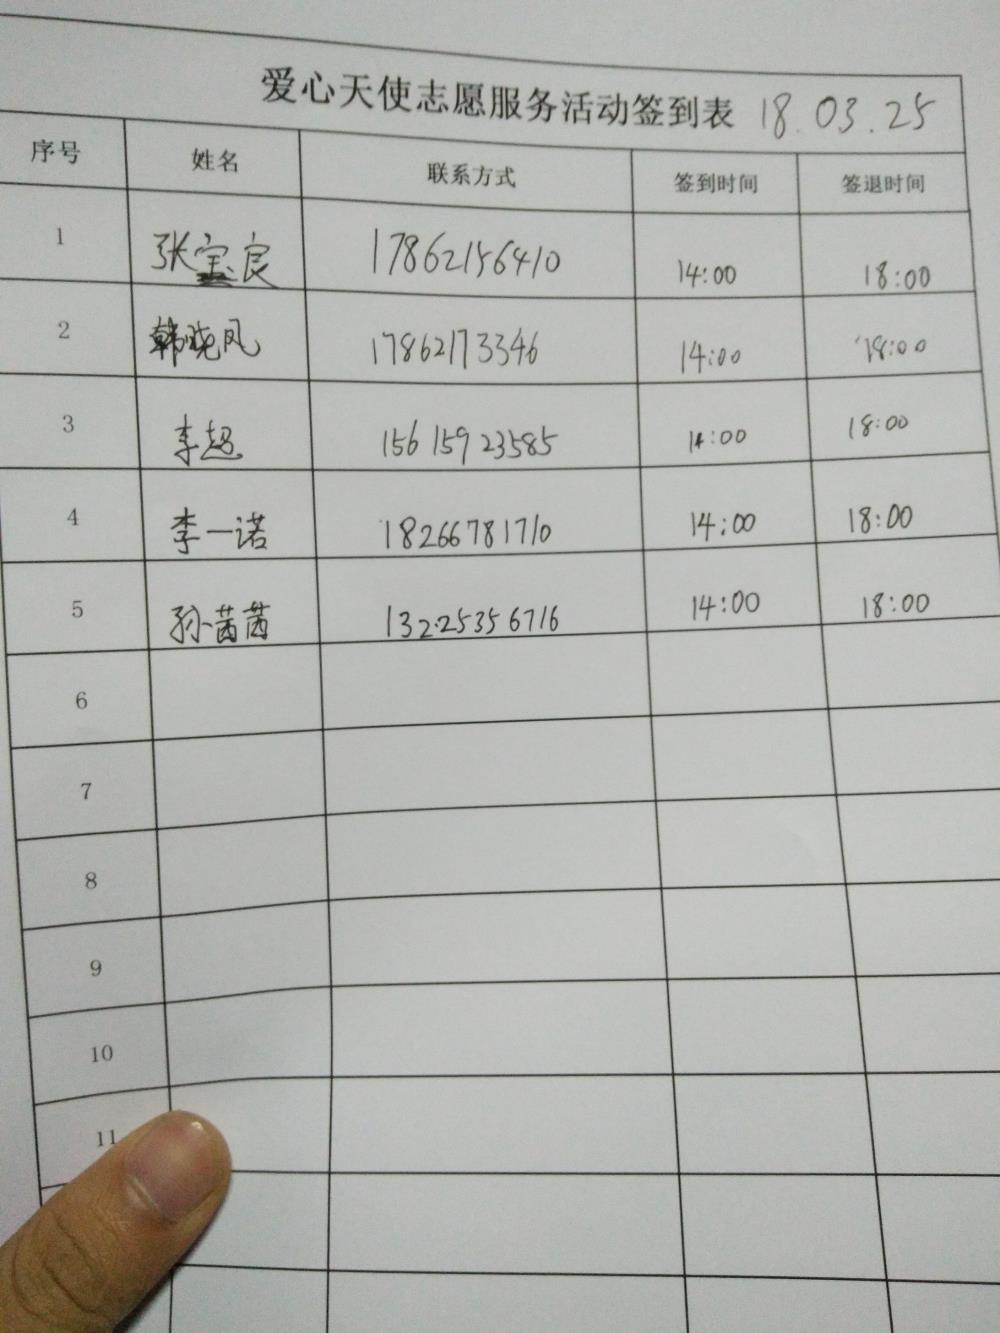 爱心天使志愿服务活动签到表 18.03.25
序号 姓名 联系方式 签到时间 签退时间
1 张宝良 17862156410 14:00 18:00
2 韩晓凤 17862173346 14:00 18:00
3 李超 15615923585 14:00 18:00
4 李一诺 18266781710 14:00 18:00
5 孙茜茜 13225356716 14:00 18:00
6
7
8
9
10
11